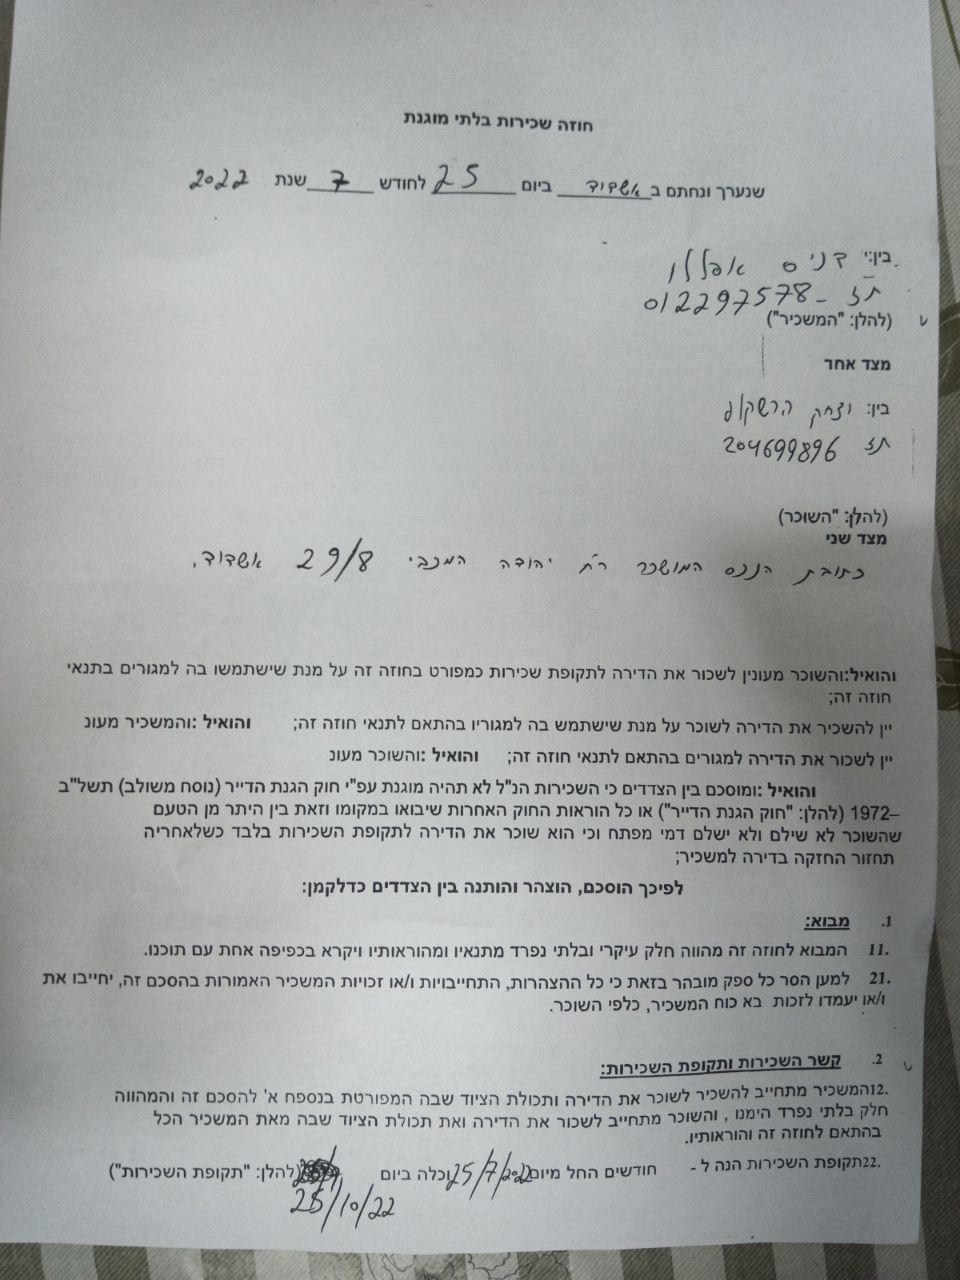 חוזה שכירות בלתי מוגנת
שנערך ונחתם ב אשדוד ביום 25 לחודש 7 שנת 2022
בין:י דניס אפללו
תז - 012297578
(להלן: "המשכיר")
מצד אחד
בין: יצחק הרשקוף
תז 204699896
(להלן: "השוכר)
מצד שני
כתובת הנכס המושכר רח' יהודה המכבי 29/8 אשדוד.
והואיל:והשוכר מעונין לשכור את הדירה לתקופת שכירות כמפורט בחוזה זה על מנת שישתמשו בה למגורים בתנאי
חוזה זה;
יין להשכיר את הדירה לשוכר על מנת שישתמש בה למגוריו בהתאם לתנאי חוזה זה; והואיל :והמשכיר מעונ
יין לשכור את הדירה למגורים בהתאם לתנאי חוזה זה; והואיל :והשוכר מעונ
והואיל :ומוסכם בין הצדדים כי השכירות הנ"ל לא תהיה מוגנת עפ"י חוק הגנת הדייר (נוסח משולב) תשל"ב
–1972 (להלן: "חוק הגנת הדייר") או כל הוראות החוק האחרות שיבואו במקומו וזאת בין היתר מן הטעם
שהשוכר לא שילם ולא ישלם דמי מפתח וכי הוא שוכר את הדירה לתקופת השכירות בלבד כשלאחריה
תחזור החזקה בדירה למשכיר;
לפיכך הוסכם, הוצהר והותנה בין הצדדים כדלקמן:
1. מבוא:
11. המבוא לחוזה זה מהווה חלק עיקרי ובלתי נפרד מתנאיו ומהוראותיו ויקרא בכפיפה אחת עם תוכנו.
21. למען הסר כל ספק מובהר בזאת כי כל ההצהרות, התחייבויות ו/או זכויות המשכיר האמורות בהסכם זה, יחייבו את
ו/או יעמדו לזכות בא כוח המשכיר, כלפי השוכר.
2. קשר השכירות ותקופת השכירות:
12.המשכיר מתחייב להשכיר לשוכר את הדירה ותכולת הציוד שבה המפורטת בנספח א' להסכם זה והמהווה
חלק בלתי נפרד הימנו , והשוכר מתחייב לשכור את הדירה ואת תכולת הציוד שבה מאת המשכיר הכל
בהתאם לחוזה זה והוראותיו.
22.תקופת השכירות הנה ל - חודשים החל מיום 25/7/2022 וכלה ביום (להלן: "תקופת השכירות")
25/10/22